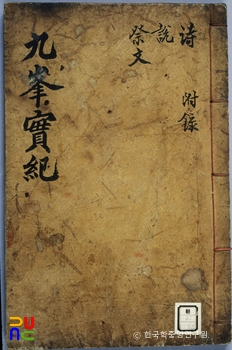 九峯實紀
詩
說
祭文
附錄
© 한국학중앙연구원